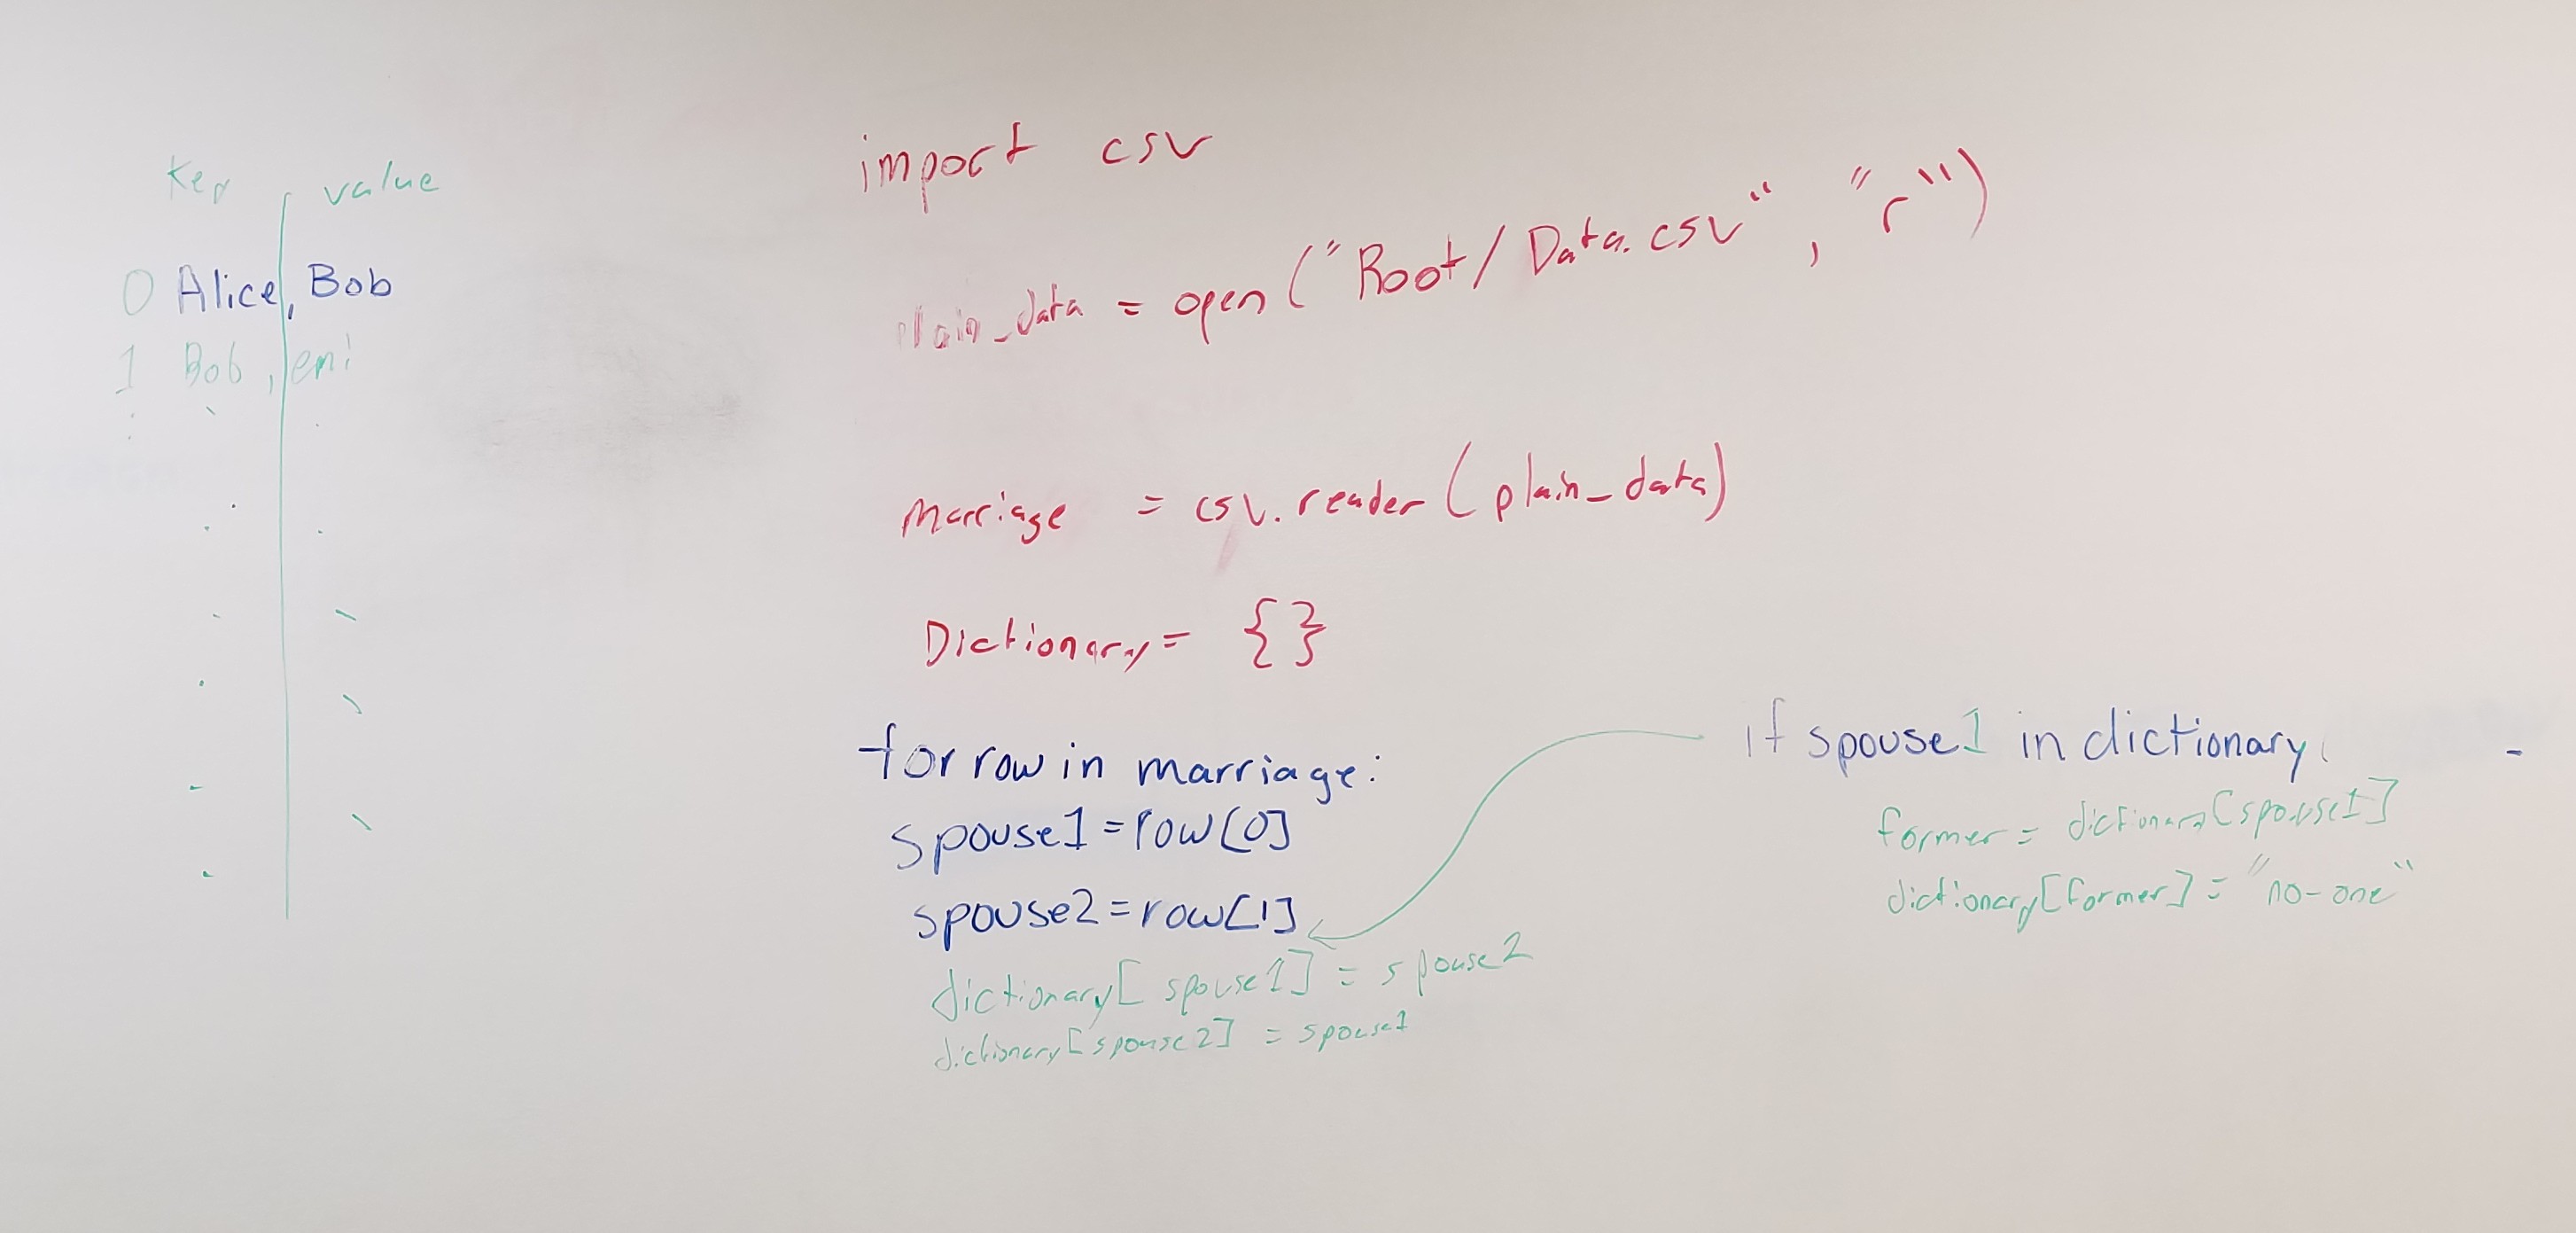 Key value
0 Alice, Bob
1 Bob, emi
import csv
plain_data = open ("Root/Data.csv", "r")
marriage = csv.reader (plain_data)
Dictionary = {}
for row in marriage:
spouse1=row[0]
spouse2=row[1]
dictionary[spouse1] = spouse2
dictionary[spouse2] = spouse1
if spouse1 in dictionary:
former = dictionary[spouse1]
dictionary[former] = "no-one"